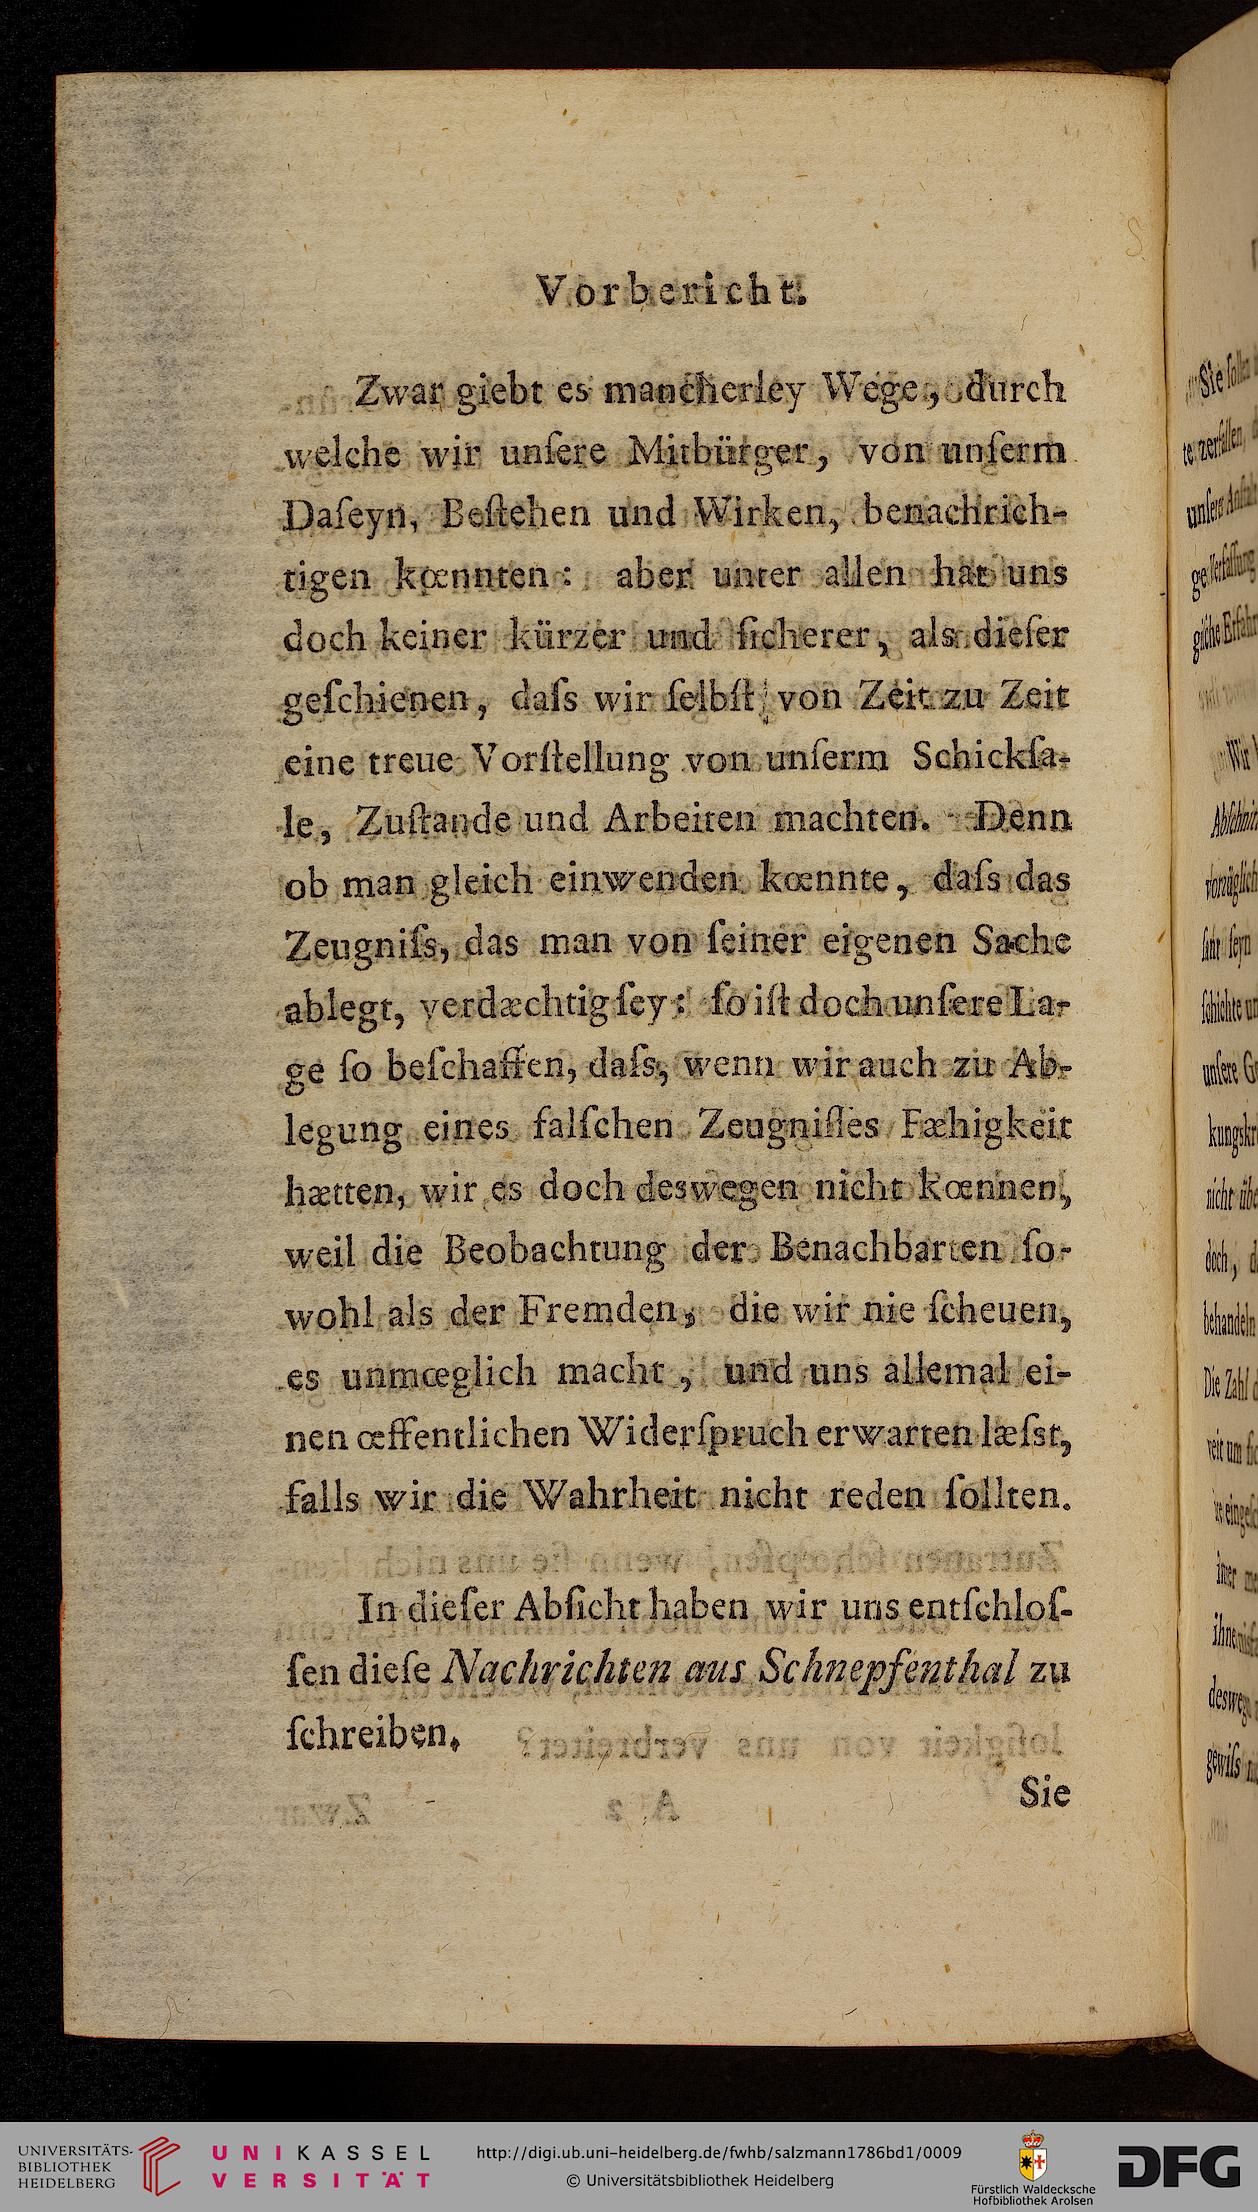 Vorbericht.
Zwar giebt es mancherley Wege, durch
welche wir unſere Mitbürger, von unſerm
Daſeyn, Beſtehen und Wirken, benachrich-
tigen kœnnten: aber unter allen hat uns
doch keiner kürzer und ſicherer, als dieſer
geſchienen, daſs wir ſelbſt von Zeit zu Zeit
eine treue Vorſtellung von unſerm Schickſa-
le, Zuſtande und Arbeiten machten. Denn
ob man gleich einwenden kœnnte, daſs das
Zeugniſs, das man von ſeiner eigenen Sache
ablegt, verdæchtig ſey: ſo iſt doch unſere La-
ge ſo beſchaffen, daſs, wenn wir auch zu Ab-
legung eines falſchen Zeugniſſes Fæhigkeit
hætten, wir es doch deswegen nicht kœnnen,
weil die Beobachtung der Benachbarten ſo-
wohl als der Fremden, die wir nie ſcheuen,
es unmœglich macht, und uns allemal ei-
nen œffentlichen Widerſpruch erwarten læſst,
falls wir die Wahrheit nicht reden ſollten.
In dieſer Abſicht haben wir uns entſchloſ-
ſen dieſe Nachrichten aus Schnepfenthal zu
ſchreiben.
Sie
UNIVERSITÄTS-
BIBLIOTHEK
HEIDELBERG
UNIKASSEL
VERSITÄT
http://digi.ub.uni-heidelberg.de/fwhb/salzmann1786bd1/0009
© Universitätsbibliothek Heidelberg
Fürstlich Waldecksche
Hofbibliothek Arolsen
DFG